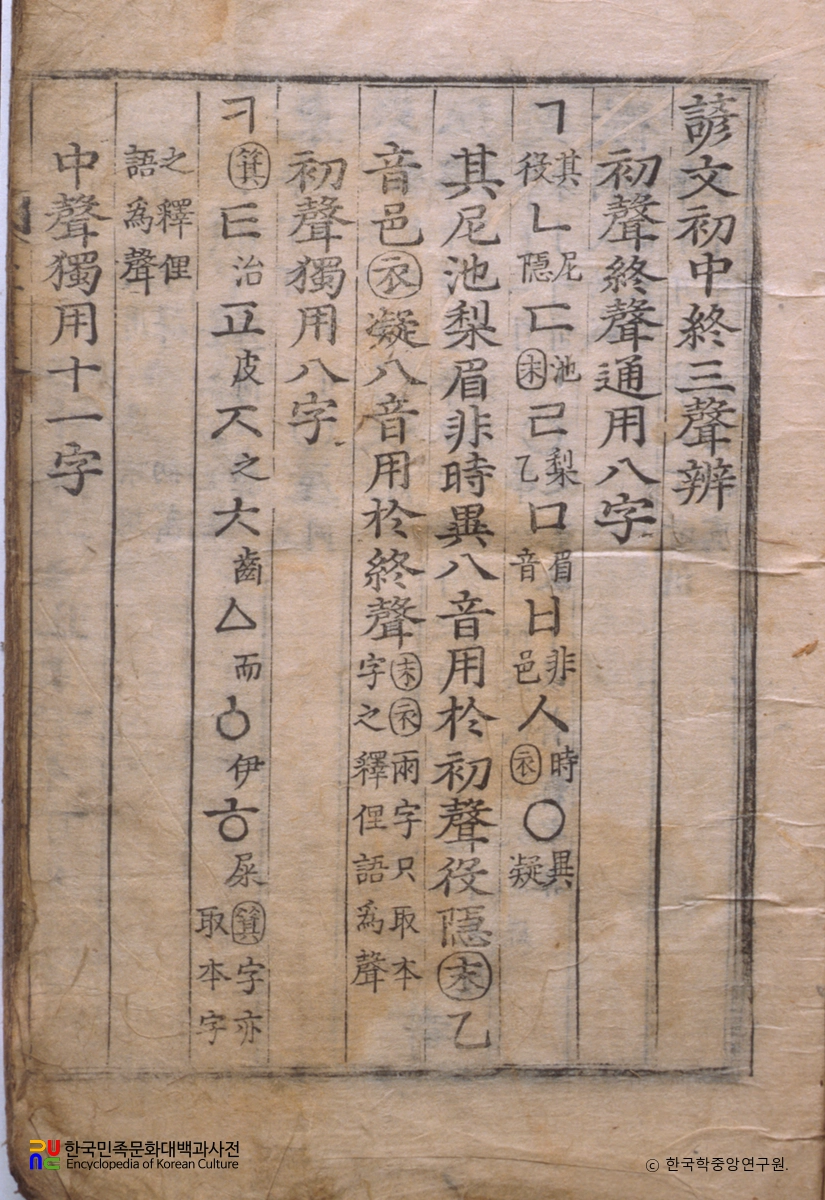 諺文初中終三聲辨
初聲終聲通用八字
ㄱ其役ㄴ尼隱ㄷ池末ㄹ梨乙ㅁ眉音ㅂ非邑ㅅ時衣ㅇ異凝
其尼池梨眉非時異八音用於初聲役隱末乙
音邑衣凝八音用於終聲末衣兩字只取本字之釋俚語爲聲
初聲獨用八字
ㅋ箕ㅌ治ㅍ皮ㅈ之ㅊ齒ㅿ而ㆁ伊ㅎ屎箕字亦取本字
之釋俚語爲聲
中聲獨用十一字
한국민족문화대백과사전
Encyclopedia of Korean Culture
ⓒ 한국학중앙연구원.